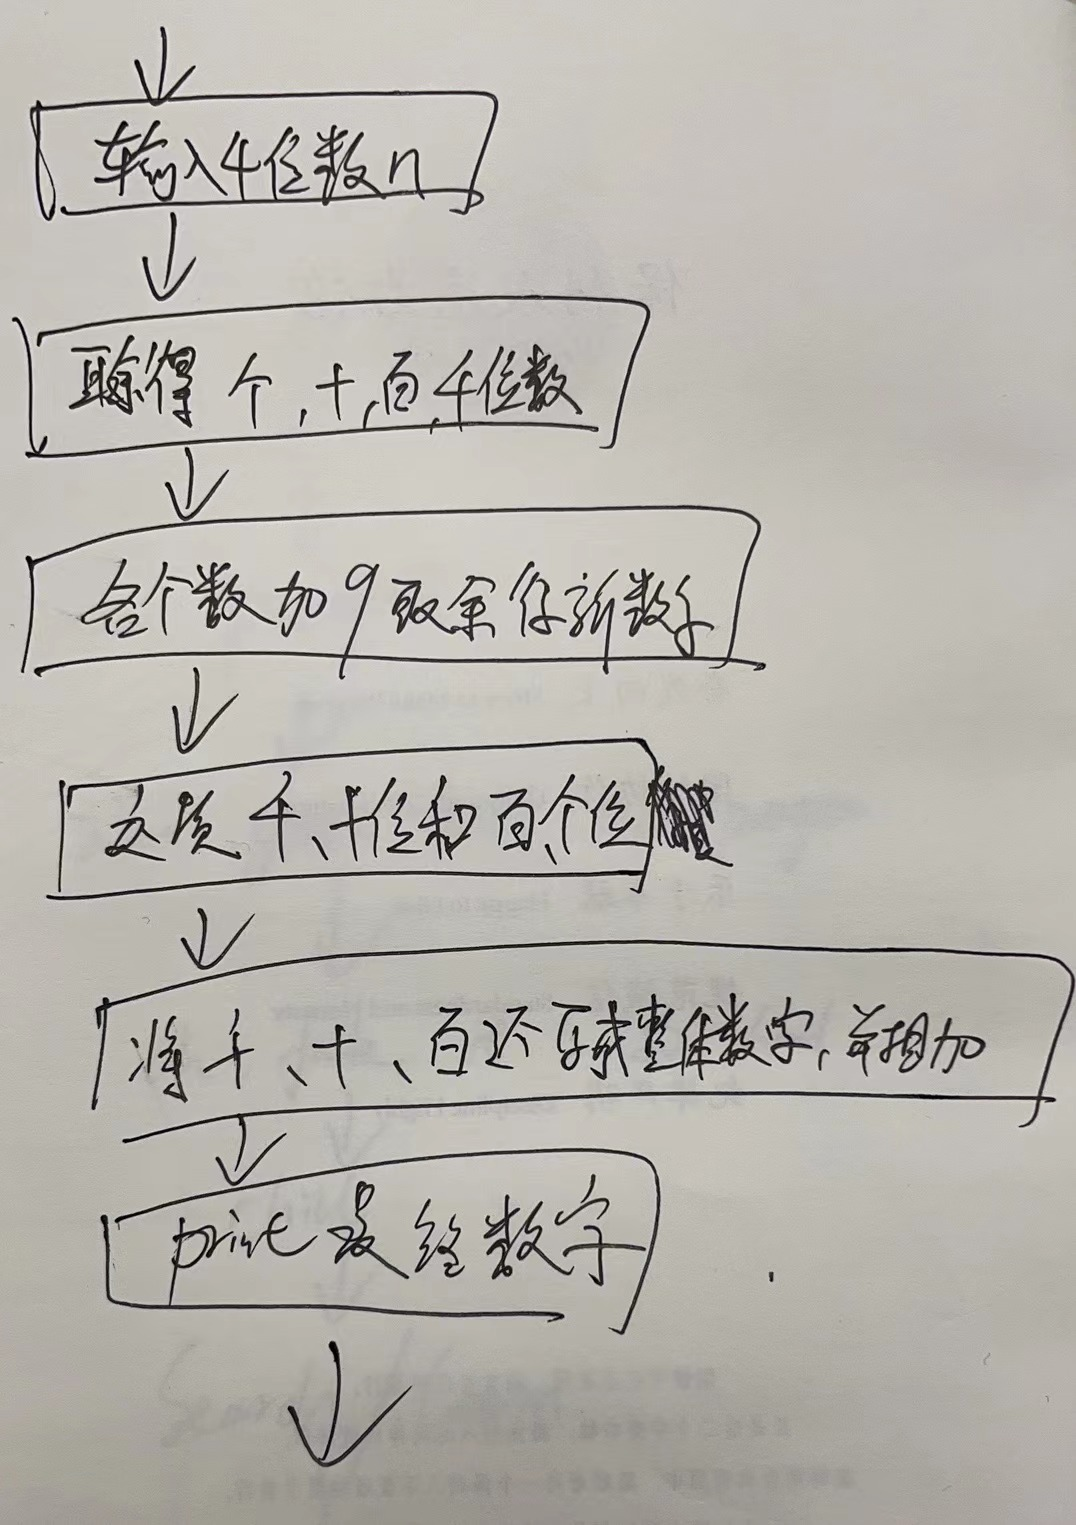 输入4位数n
取余得 个,十,百,千位数
各个数加9取余得新数字
交换 千、十位和百、个位
将千、十、百还原成整体数字,并相加
print 最终数字